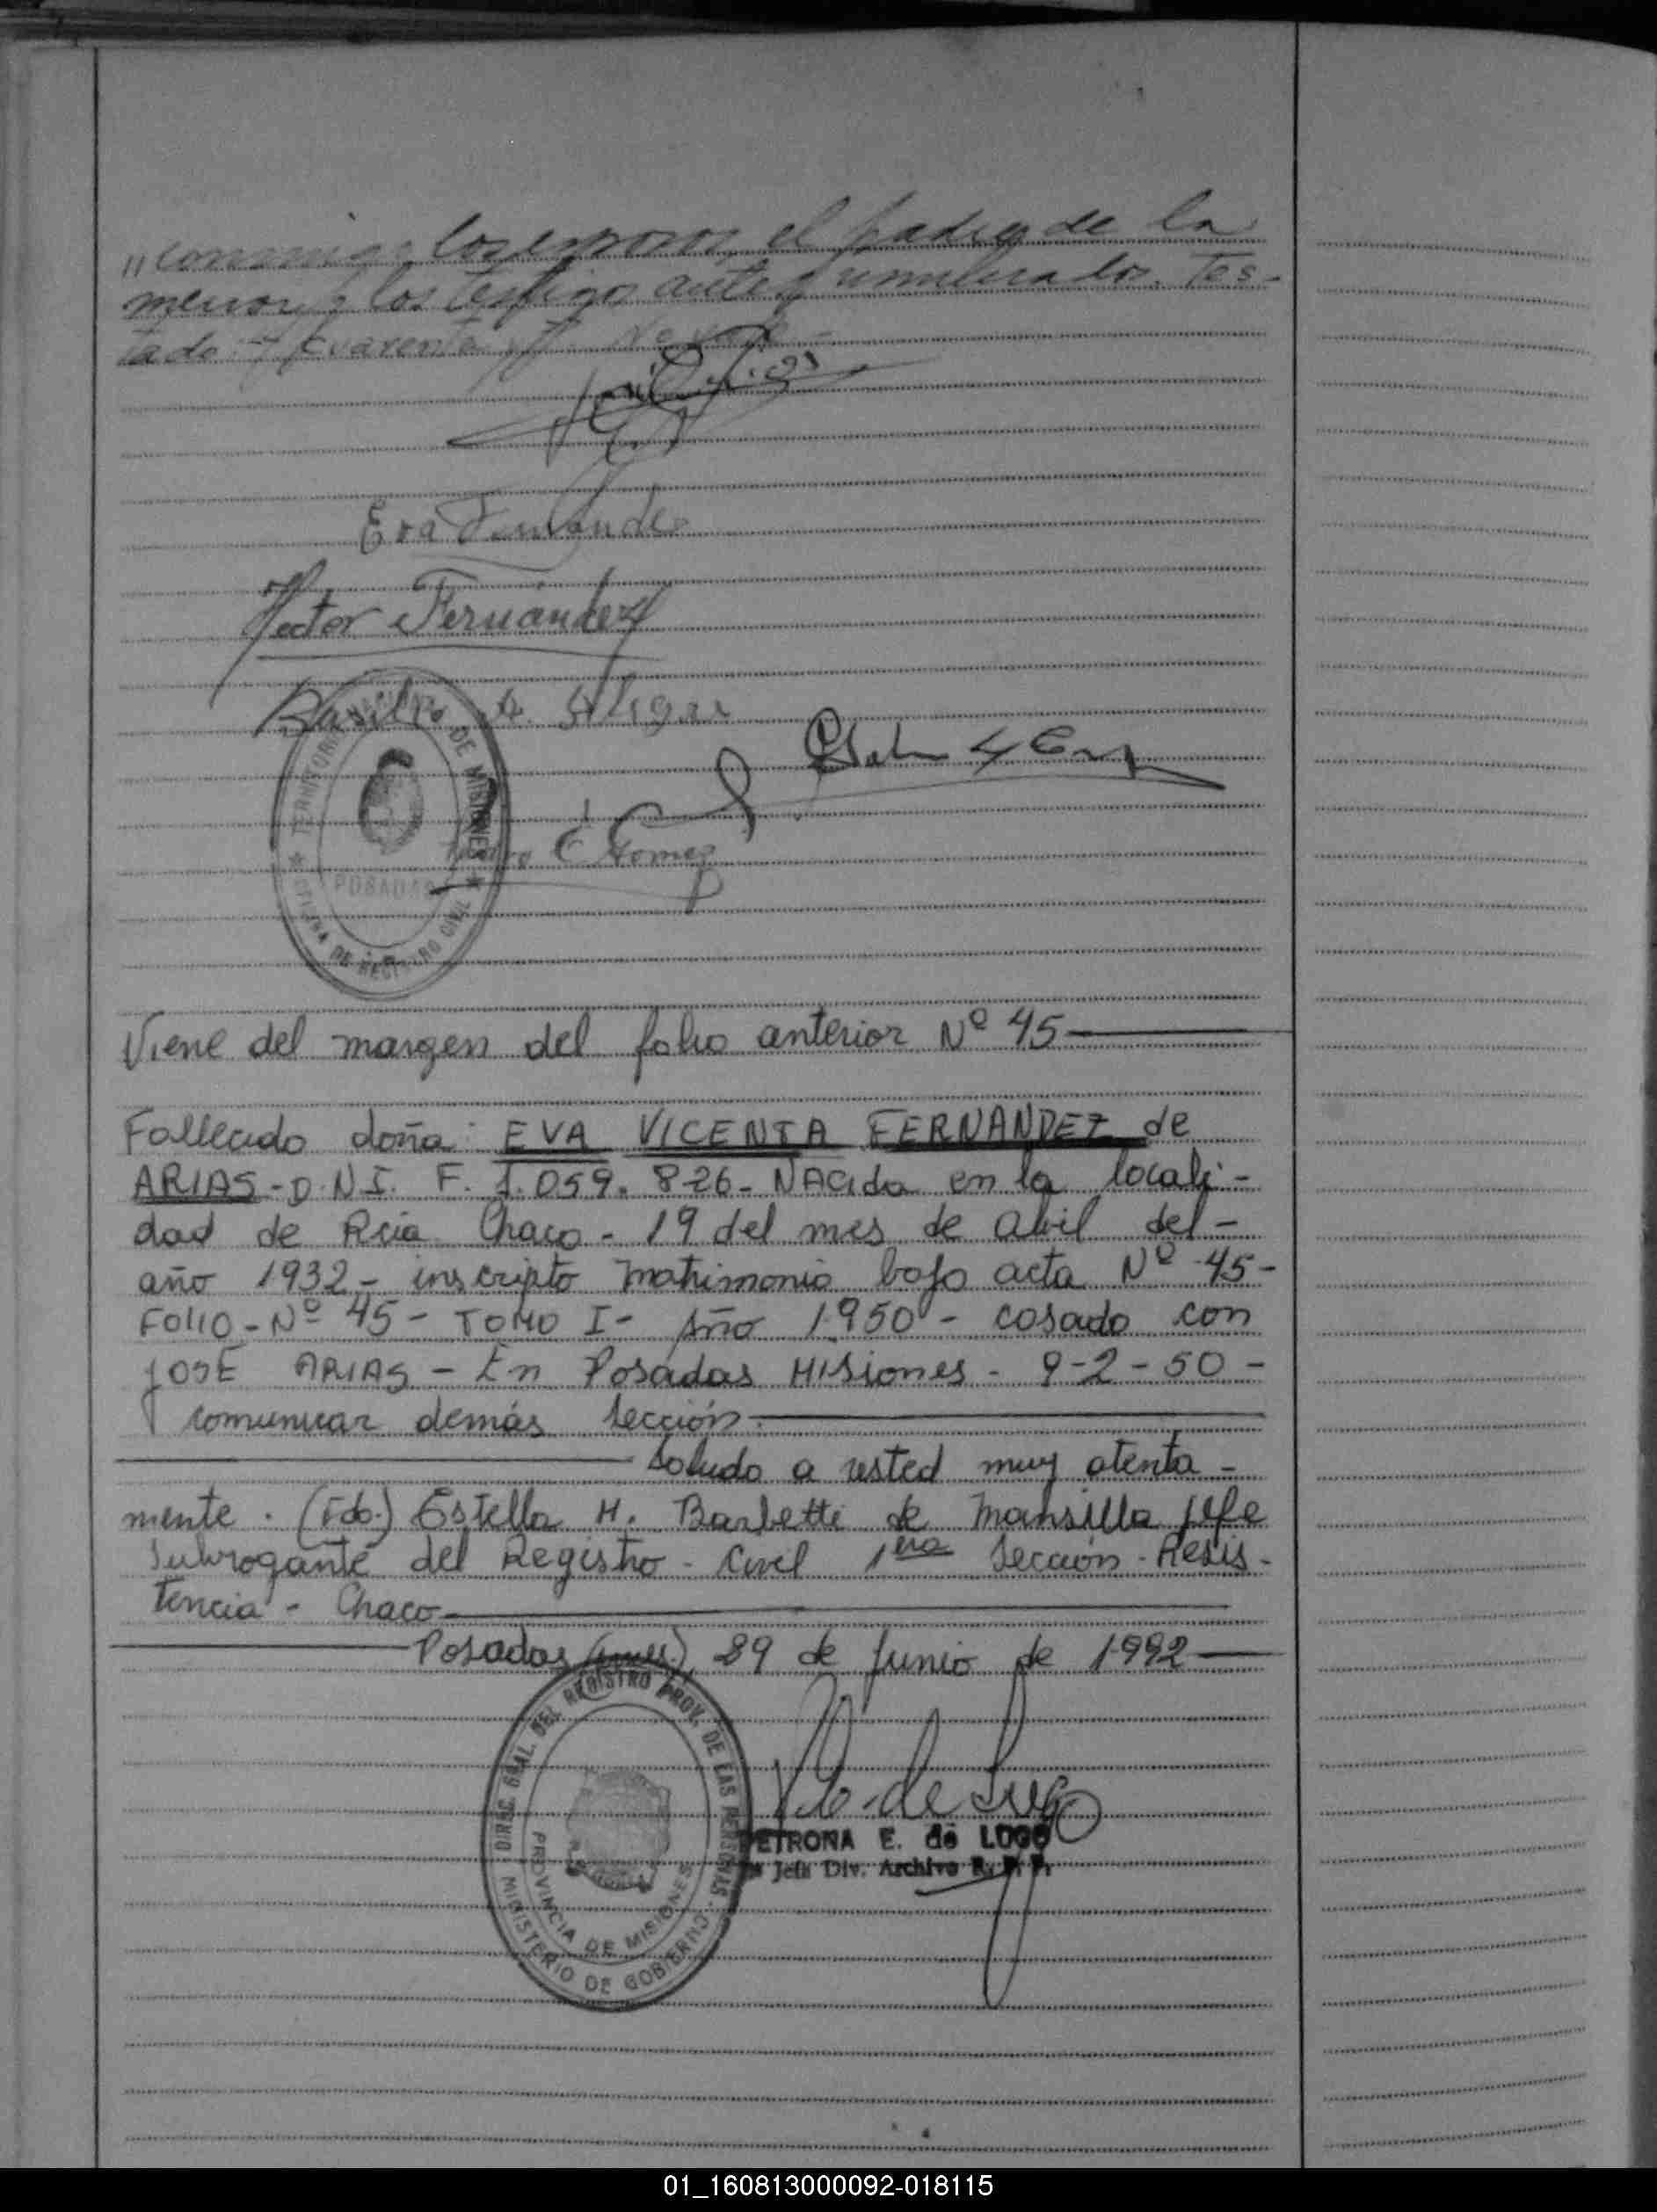 "conmigo los esposos, el padre de la
menor y los testigos antes nombrados. Tes-
tado: - Cuarenta
Eva Fernandez
Hector Fernandez
Basilio A.
E Gomez
TERRITORIO DE MISIONES
POSADAS
OFICINA DE REGISTRO CIVIL
Viene del margen del folio anterior Nº 45
Fallecido doña: EVA VICENTA FERNANDEZ de
ARIAS - D.N.I. F. 1.059.826 - NAcida en la locali-
dad de Rcia Chaco - 19 del mes de abril del -
año 1932 - inscripto matrimonio bajo acta Nº 45 -
FOLIO - Nº 45 - TOMO I - Año 1950 - casado con
JOSE ARIAS - En Posadas MISiones - 9-2-50 -
comunicar demás sección.
Saludo a usted muy atenta -
mente. (Fdo.) Estella H. Barbetti de Mansilla Jefe
Subrogante del Registro - Civil 1era Sección - Resis -
tencia - Chaco
Posadas (Mnes.), 29 de Junio de 1992
DIREC. GRAL. DEL REGISTRO PROV. DE LAS PERSONAS
PROVINCIA DE MISIONES
MINISTERIO DE GOBIERNO
de Lugo
PETRONA E. de LUGO
Jefa Div. Archivo R. P. P.
01_160813000092-018115